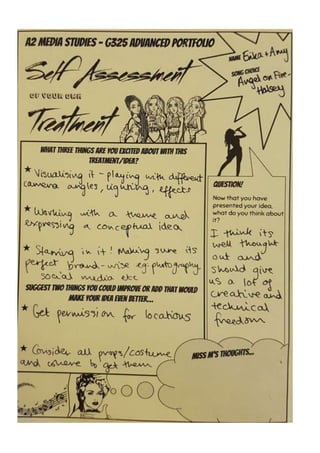 A2 MEDIA STUDIES - G325 ADVANCED PORTFOLIO
NAME Erika + Amy
SONG CHOICE
Angel on Fire -
Halsey
Self Assessment
OF YOUR OWN
Treatment
WHAT THREE THINGS ARE YOU EXCITED ABOUT WITH THIS
TREATMENT/IDEA?
Visualising it - playing with different
camera angles, lighting, effects
Working with a theme and
expressing a conceptual idea
Starring in it! Making sure its
perfect brand-wise eg: photography
social media etc
SUGGEST TWO THINGS YOU COULD IMPROVE OR ADD THAT WOULD
MAKE YOUR IDEA EVEN BETTER...
Get permission for locations
Consider all props/costume
and where to get them
QUESTION!
Now that you have
presented your idea,
what do you think about
it?
I think its
well thought
out and
should give
us a lot of
creative and
technical
freedom
MISS M'S THOUGHTS...